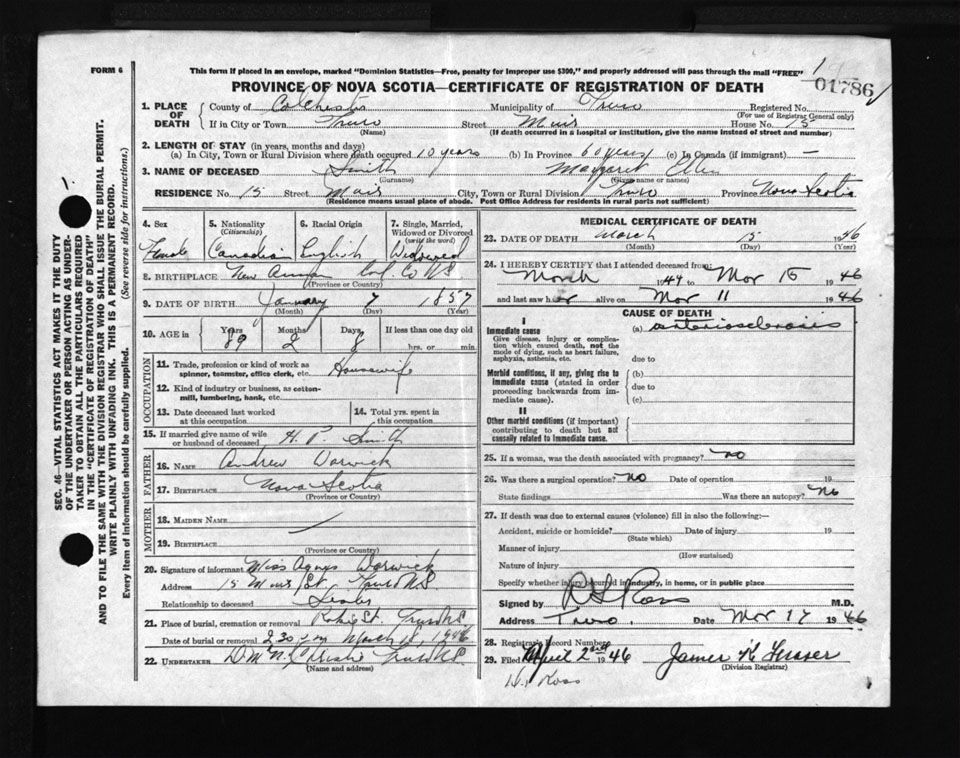 FORM 6
This form if placed in an envelope, marked "Dominion Statistics—Free, penalty for improper use $300," and properly addressed will pass through the mail "FREE"
01786
PROVINCE OF NOVA SCOTIA—CERTIFICATE OF REGISTRATION OF DEATH
1. PLACE OF DEATH
County of Colchester Municipality of Truro Registered No.
(For use of Registrar General only)
If in City or Town Truro Street Muir House No. 15
(Name) (If death occurred in a hospital or institution, give the name instead of street and number)
2. LENGTH OF STAY (in years, months and days)
(a) In City, Town or Rural Division where death occurred 10 years (b) In Province 60 years (c) In Canada (if immigrant) —
3. NAME OF DECEASED Smith Margaret Ellen
(Surname) (Given name or names)
RESIDENCE No. 15 Street Muir City, Town or Rural Division Truro Province Nova Scotia
(Residence means usual place of abode. Post Office Address for residents in rural parts not sufficient)
4. Sex Female
5. Nationality (Citizenship) Canadian
6. Racial Origin English
7. Single, Married, Widowed or Divorced (write the word) Widowed
8. BIRTHPLACE New Annan Col. Co N.S.
(Province or Country)
9. DATE OF BIRTH January 7 1857
(Month) (Day) (Year)
10. AGE in Years 89 Months 2 Days 8 If less than one day old hrs. or min.
OCCUPATION
11. Trade, profession or kind of work as spinner, teamster, office clerk, etc. Housewife
12. Kind of industry or business, as cotton-mill, lumbering, bank, etc.
13. Date deceased last worked at this occupation
14. Total yrs. spent in this occupation
15. If married give name of wife or husband of deceased H. P. Smith
FATHER
16. NAME Andrew Warwick
17. BIRTHPLACE Nova Scotia
(Province or Country)
MOTHER
18. MAIDEN NAME
19. BIRTHPLACE
(Province or Country)
20. Signature of informant Miss Agnes Warwick
Address 15 Muir St. Truro N.S.
Relationship to deceased
21. Place of burial, cremation or removal Robie St. Truro N.S.
Date of burial or removal 2.30 pm March 1946
22. UNDERTAKER Truro N.S.
(Name and address)
MEDICAL CERTIFICATE OF DEATH
23. DATE OF DEATH March 15 1946
(Month) (Day) (Year)
24. I HEREBY CERTIFY that I attended deceased from:
March 1944 to Mar 15 1946
and last saw her alive on Mar 11 1946
CAUSE OF DEATH
I
Immediate cause
Give disease, injury or complication which caused death, not the mode of dying, such as heart failure, asphyxia, asthenia, etc.
(a) arteriosclerosis
due to
Morbid conditions, if any, giving rise to immediate cause (stated in order proceeding backwards from immediate cause).
(b)
due to
(c)
II
Other morbid conditions (if important) contributing to death but not causally related to immediate cause.
25. If a woman, was the death associated with pregnancy? no
26. Was there a surgical operation? no Date of operation 19
State findings Was there an autopsy? No
27. If death was due to external causes (violence) fill in also the following:—
Accident, suicide or homicide? Date of injury 19
(State which)
Manner of injury
(How sustained)
Nature of injury
Specify whether injury occurred in industry, in home, or in public place
Signed by Ross M.D.
Address Truro. Date Mar 17 1946
28. Registrar's Record Number
29. Filed April 2nd 1946 James K Fraser
(Division Registrar)
Ross
SEC. 46—VITAL STATISTICS ACT MAKES IT THE DUTY
OF THE UNDERTAKER OR PERSON ACTING AS UNDER-
TAKER TO OBTAIN ALL THE PARTICULARS REQUIRED
IN THE "CERTIFICATE OF REGISTRATION OF DEATH"
AND TO FILE THE SAME WITH THE DIVISION REGISTRAR WHO SHALL ISSUE THE BURIAL PERMIT.
WRITE PLAINLY WITH UNFADING INK. THIS IS A PERMANENT RECORD.
Every item of information should be carefully supplied. (See reverse side for instructions.)